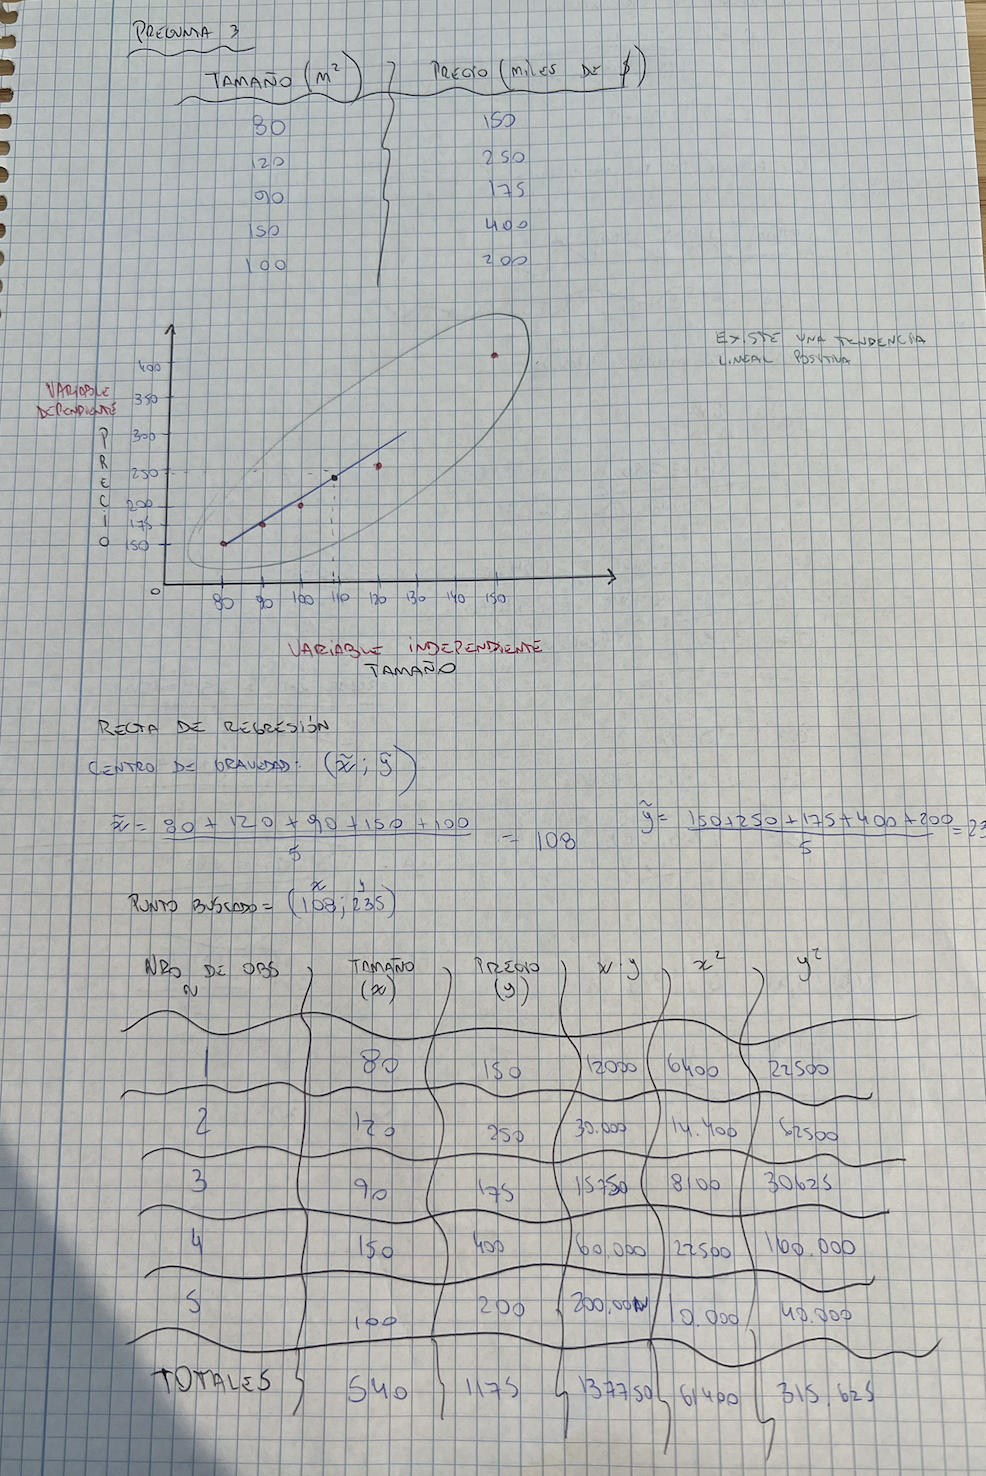 PREGUNTA 3
TAMAÑO (m²) PRECIO (MILES DE $)
80 150
120 250
90 175
150 400
100 200
EXISTE UNA TENDENCIA
LINEAL POSITIVA
VARIABLE
DEPENDIENTE
PRECIO
400
350
300
250
200
175
150
0
80 90 100 110 120 130 140 150
VARIABLE INDEPENDIENTE
TAMAÑO
RECTA DE REGRESIÓN
CENTRO DE GRAVEDAD: (x̃; ỹ)
x̃ = 80 + 120 + 90 + 150 + 100 / 5 = 108 ỹ = 150+250+175+400+200 / 5 = 23
x y
PUNTO BUSCADO = (108; 235)
NRO DE OBS TAMAÑO PRECIO x·y x² y²
N (x) (y)
1 80 150 12000 6400 22500
2 120 250 30.000 14.400 62500
3 90 175 15750 8100 30625
4 150 400 60.000 22500 160.000
5 100 200 10.000 40.000
TOTALES 540 1175 137750 61400 315.625